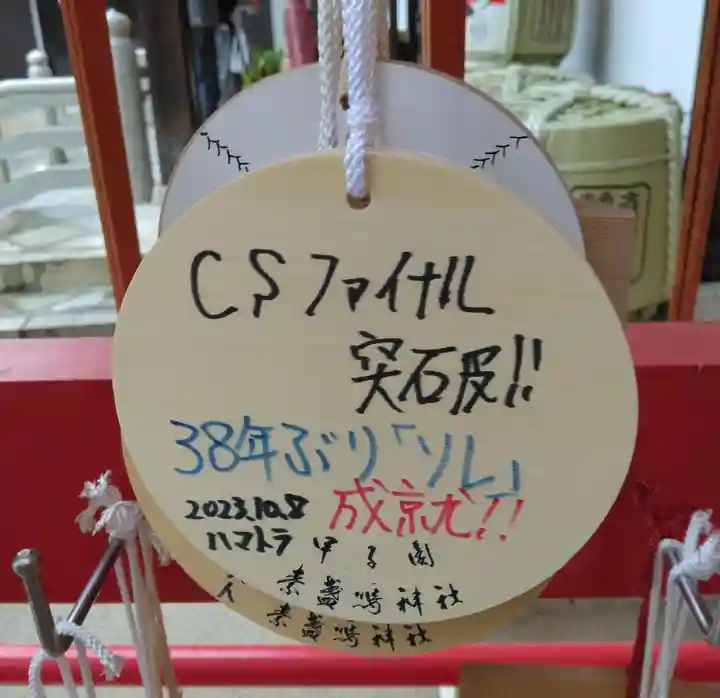 CSファイナル
突破!!
38年ぶり「ソレ」
2023.10.8 成就!!
ハマトラ
甲子園
素盞嗚神社
素盞嗚神社